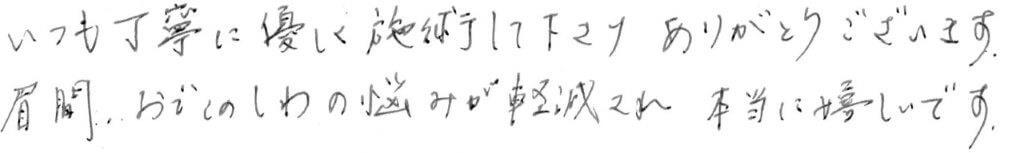 いつも丁寧に優しく施術して下さり ありがとうございます。
眉間、おでこのしわの悩みが軽減され 本当に嬉しいです。